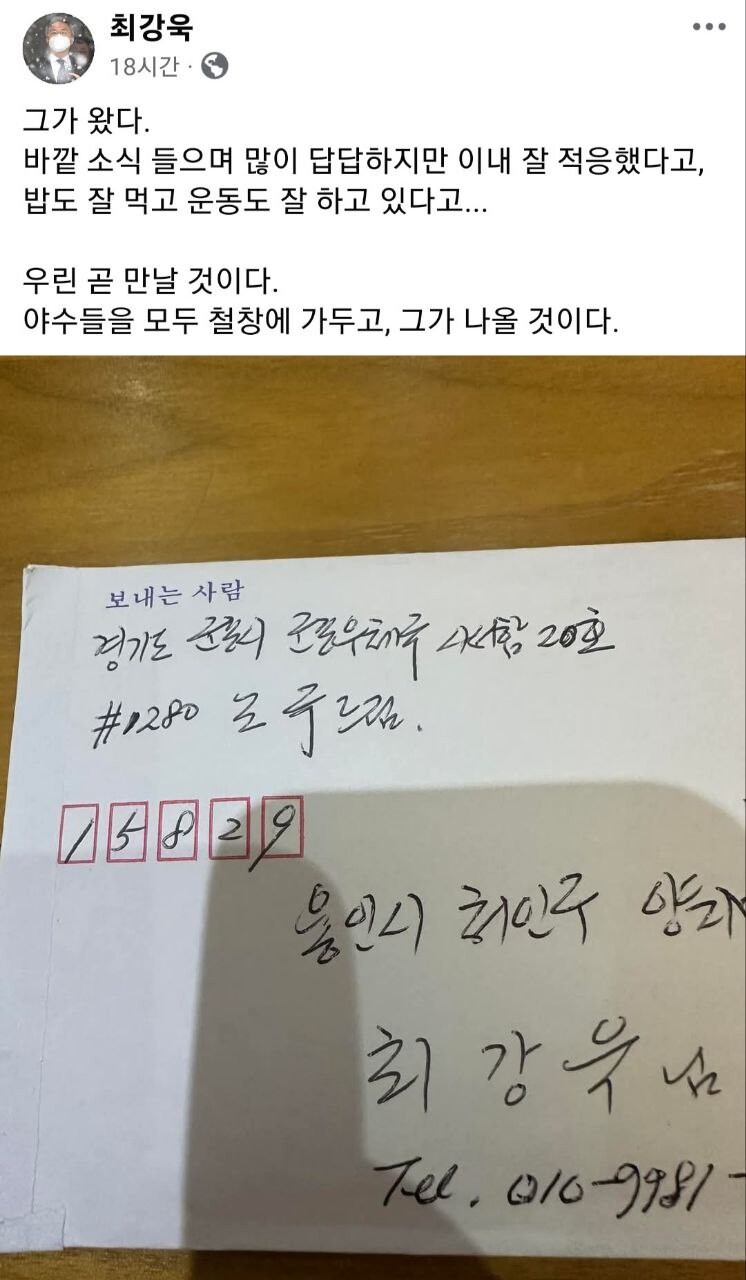 최강욱
18시간 ·
그가 왔다.
바깥 소식 들으며 많이 답답하지만 이내 잘 적응했다고,
밥도 잘 먹고 운동도 잘 하고 있다고...
우린 곧 만날 것이다.
야수들을 모두 철창에 가두고, 그가 나올 것이다.
보내는 사람
경기도 군포시 군포우체국 사서함 20호
#1280 조 국 드림.
15829
용인시 처인구
최 강 욱 님
Tel. 010-9981-